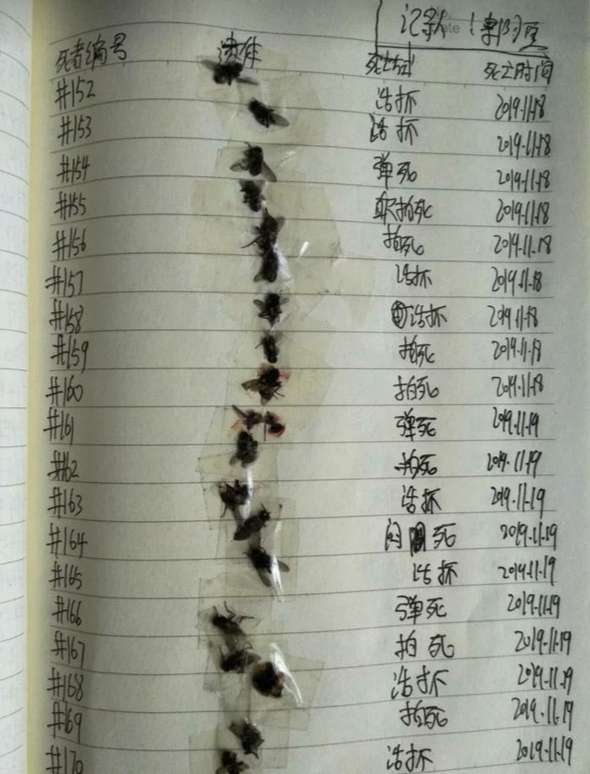 记录人
死者编号 遗体 死亡时间
#152 活抓 2019.11.18
#153 活抓 2019.11.18
#154 弹死 2019.11.18
#155 拍死 2019.11.18
#156 拍死 2019.11.18
#157 活抓 2019.11.18
#158 活抓 2019.11.18
#159 拍死 2019.11.18
#160 拍死 2019.11.18
#161 弹死 2019.11.19
#162 拍死 2019.11.19
#163 活抓 2019.11.19
#164 死 2019.11.19
#165 活抓 2019.11.19
#166 弹死 2019.11.19
#167 拍死 2019.11.19
#168 活抓 2019.11.19
#169 拍死 2019.11.19
#170 活抓 2019.11.19